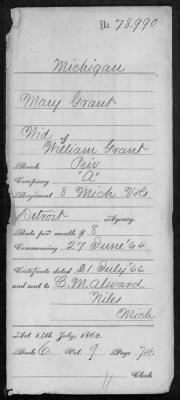 No. 78,990
Michigan
Mary Grant
Wid of
William Grant
Rank Priv
Company "A"
Regiment 8 Mich Vols.
Detroit Agency.
Rate per month $ 8,
Commencing 27 June '64
Certificate dated 21 July '66
and sent to C. M. Alward
Niles
Mich
Act 14th July, 1862.
Book C Vol. 9 Page 74
Clerk